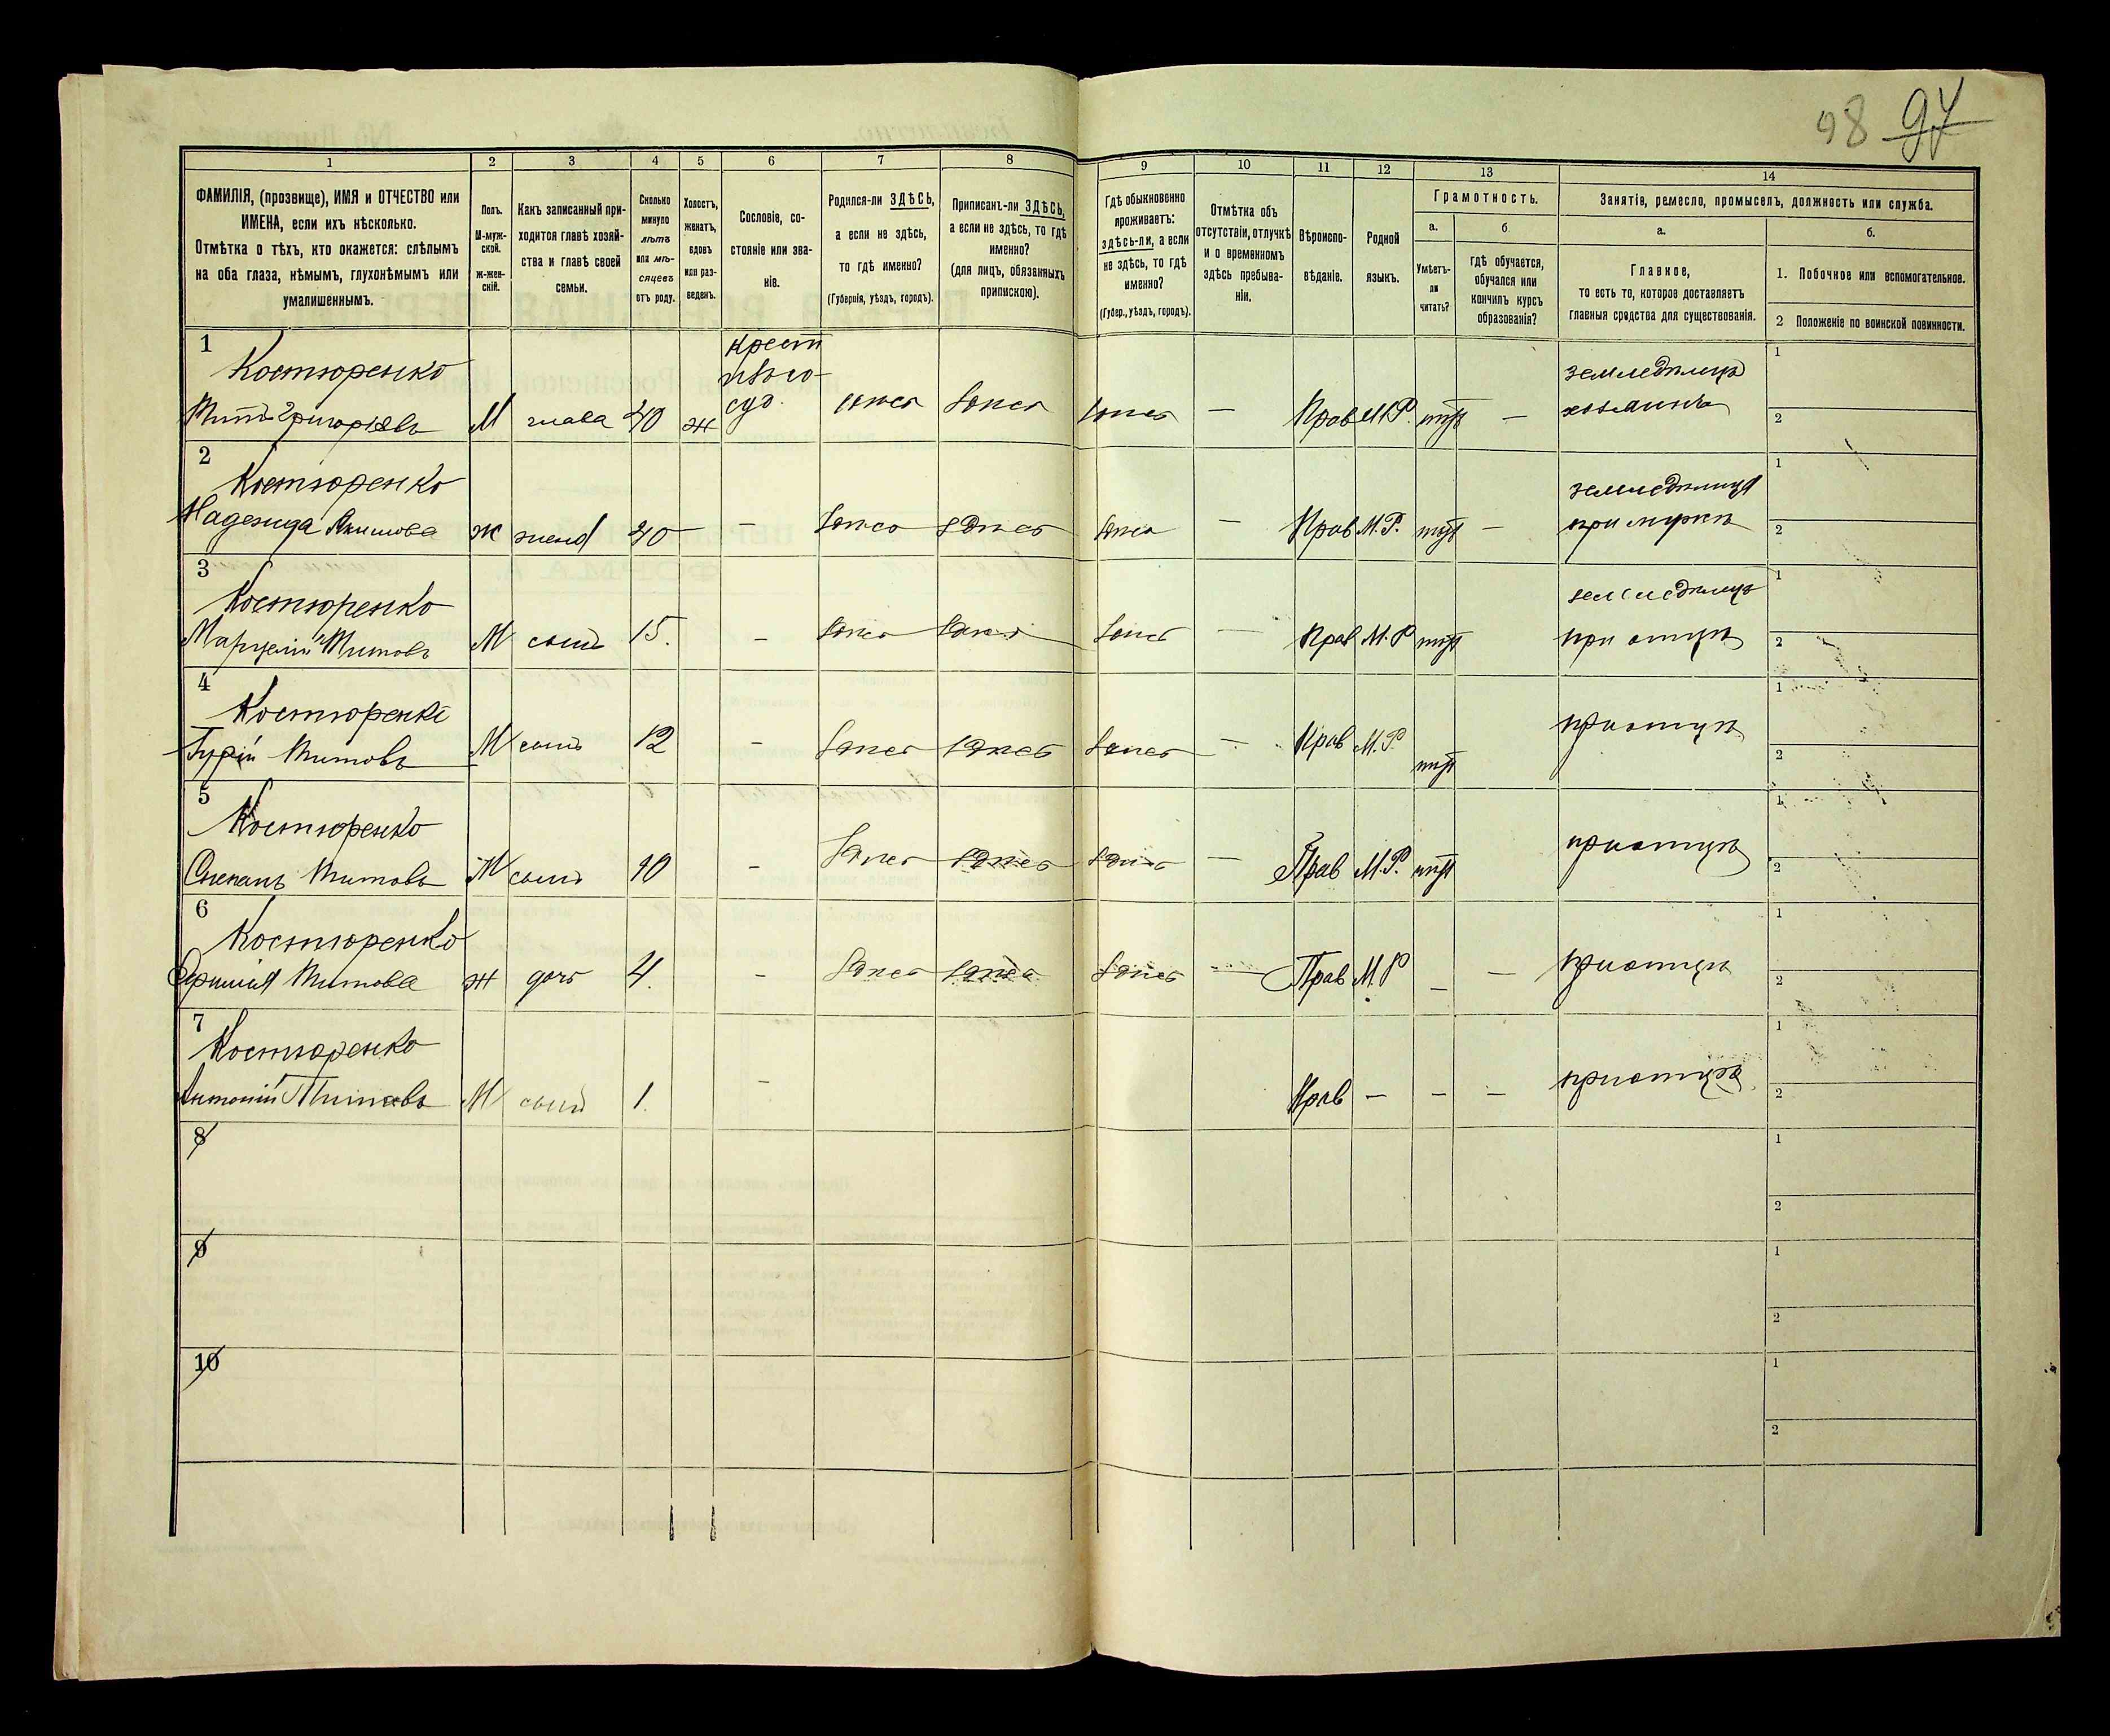 98 97
1 2 3 4 5 6 7 8 9 10 11 12 13 14
ФАМИЛІЯ, (прозвище), ИМЯ и ОТЧЕСТВО или
ИМЕНА, если ихъ нѣсколько.
Отмѣтка о тѣхъ, кто окажется: слѣпымъ
на оба глаза, нѣмымъ, глухонѣмымъ или
умалишеннымъ.
Полъ.
М-муж-
ской.
ж-жен-
скій.
Какъ записанный при-
ходится главѣ хозяй-
ства и главѣ своей
семьи.
Сколько
минуло
лѣтъ
или мѣ-
сяцевъ
отъ роду.
Холостъ,
женатъ,
вдовъ
или раз-
веденъ.
Сословіе, со-
стояніе или зва-
ніе.
Родился-ли ЗДѢСЬ,
а если не здѣсь,
то гдѣ именно?
(Губернія, уѣздъ, городъ).
Приписанъ-ли ЗДѢСЬ,
а если не здѣсь, то гдѣ
именно?
(для лицъ, обязанныхъ
припискою).
Гдѣ обыкновенно
проживаетъ:
здѣсь-ли, а если
не здѣсь, то гдѣ
именно?
(Губер., уѣздъ, городъ).
Отмѣтка объ
отсутствіи, отлучкѣ
и о временномъ
здѣсь пребыва-
ніи.
Вѣроиспо-
вѣданіе.
Родной
языкъ.
Грамотность.
а.
Умѣетъ-
ли
читать?
б.
гдѣ обучается,
обучался или
кончилъ курсъ
образованія?
Занятіе, ремесло, промыселъ, должность или служба.
а.
Главное,
то есть то, которое доставляетъ
главныя средства для существованія.
б.
1. Побочное или вспомогательное.
2 Положеніе по воинской повинности.
1 Костюренко крест земледѣлецъ 1
Титъ Григорьевъ М глава 40 ж здѣсь здѣсь здѣсь — Прав М.Р. нѣтъ — хозяинъ 2
2 Костюренко земледѣлица 1
Надежда Якимова ж жена 40 — здѣсь здѣсь здѣсь — Прав М.Р. нѣтъ — при мужѣ 2
3 Костюренко земледѣлецъ 1
Маркелій Титовъ М сынъ 15. — здѣсь здѣсь здѣсь — Прав М.Р нѣтъ при отцѣ 2
4 Костюренко 1
Гурій Титовъ М сынъ 12 — здѣсь здѣсь здѣсь — Прав М.Р. нѣтъ при отцѣ 2
5 Костюренко 1
Степанъ Титовъ М сынъ 10 — здѣсь здѣсь здѣсь — Прав М.Р. нѣтъ при отцѣ 2
6 Костюренко 1
Титова ж дочь 4. — здѣсь здѣсь здѣсь — Прав М.Р — — при отцѣ 2
7 Костюренко 1
Антоній Титовъ М сынъ 1. — Прав — — — при отцѣ 2
8 1
2
9 1
2
10 1
2